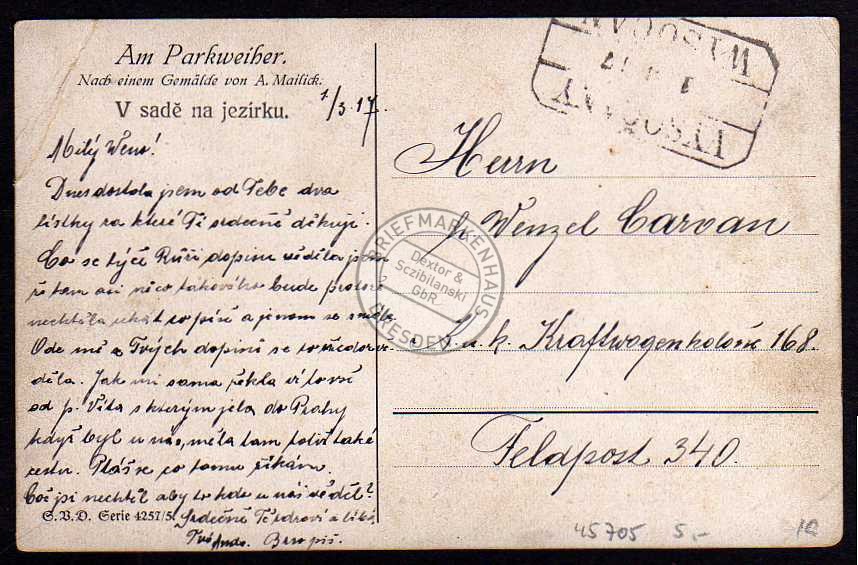 Am Parkweiher.
Nach einem Gemälde von A. Mailick.
V sadě na jezírku.
1/3.17.
Milý Veno!
Dnes dostala jsem od Tebe dva
lístky za které Ti srdečně děkuji.
Co se týče Růži dopisu věděla jsem
že tam asi něco takového bude protože
nechtěla ukát co píše a jenom se smála.
Ode mě a Tvých dopisů se to
děla. Jak mi sama řekla ví to vše
od p. Víta s kterým jela do Prahy
když byl u nás, měla tam totiž také
cestu. Ptáš se co tomu říkám.
Což pi nechtěl aby to kdo u nás věděl?
S.V.D. Serie 4257/5
Srdečně Tě zdraví a líbá
Tvá Brzo piš.
WYSOČAN
1 17
VYSOČANY
Herrn
p. Wenzel Carvan
K.u.k. Kraftwagenkolone 168.
Feldpost 340.
BRIEFMARKENHAUS
Dextor &
Sczibilanski
GbR
DRESDEN
45705 5,-